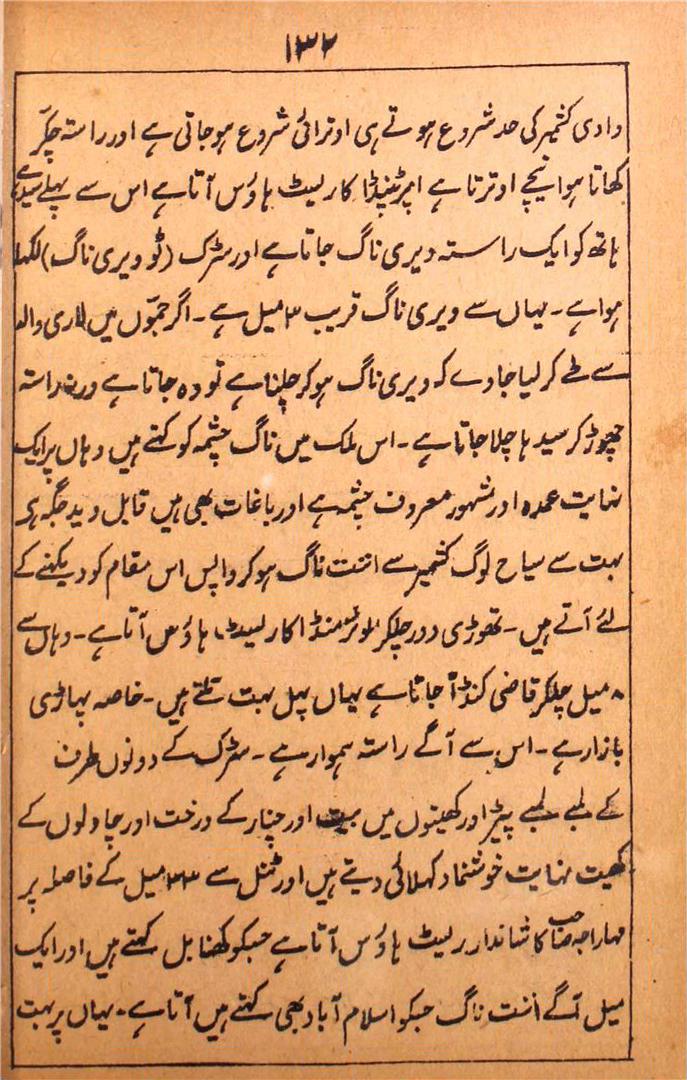 ۱۳۲
وادی کشمیر کی حد شروع ہوتے ہی اوترائی شروع ہوجاتی ہے اور راستہ چکر
کھاتا ہوا نیچے اوترتا ہے اپرٹنڈا کا رلیٹ ہاؤس آتا ہے اس سے پہلے سیدھے
ہاتھ کو ایک راستہ ویری ناگ جاتا ہے اور سڑک (ٹو ویری ناگ) لکھا
ہوا ہے۔ یہاں سے ویری ناگ قریب ۳ میل ہے۔ اگر جموّں میں لاری والہ
سے طے کر لیا جاوے کہ ویری ناگ ہوکر چلنا ہے تو وہ جاتا ہے ورنہ راستہ
چھوڑ کر سیدہا چلا جاتا ہے۔ اس ملک میں ناگ چشمہ کو کہتے ہیں وہاں پر ایک
نہایت عمدہ اور مشہور معروف چشمہ ہے اور باغات بھی ہیں قابل دید جگہ ہی
بہت سے سیاح لوگ کشمیر سے اننت ناگ ہوکر واپس اس مقام کو دیکہنے کے
لئے آتے ہیں۔ تھوڑی دور چلکر لوئرمنڈا کا رلیٹ ہاؤس آتا ہے۔ وہاں سے
۸ میل چلکر قاضی کنڈ آجاتا ہے یہاں پہل بہت ملتے ہیں۔ خاصہ پہاڑی
بازار ہے۔ اس سے آگے راستہ ہموار ہے۔ سڑک کے دونوں طرف
کے لمبے لمبے پیڑ اور کھیتوں میں بید اور چنار کے درخت اور چاولوں کے
کھیت نہایت خوشنما دکہلائی دیتے ہیں اور ٹنل سے ۳۳ میل کے فاصلہ پر
مہاراجہ صاحب کا شاندار رلیٹ ہاؤس آتا ہے جسکو کھنابل کہتے ہیں اور ایک
میل آگے اننت ناگ جسکو اسلام آباد بھی کہتے ہیں آتا ہے۔ یہاں پر بہت